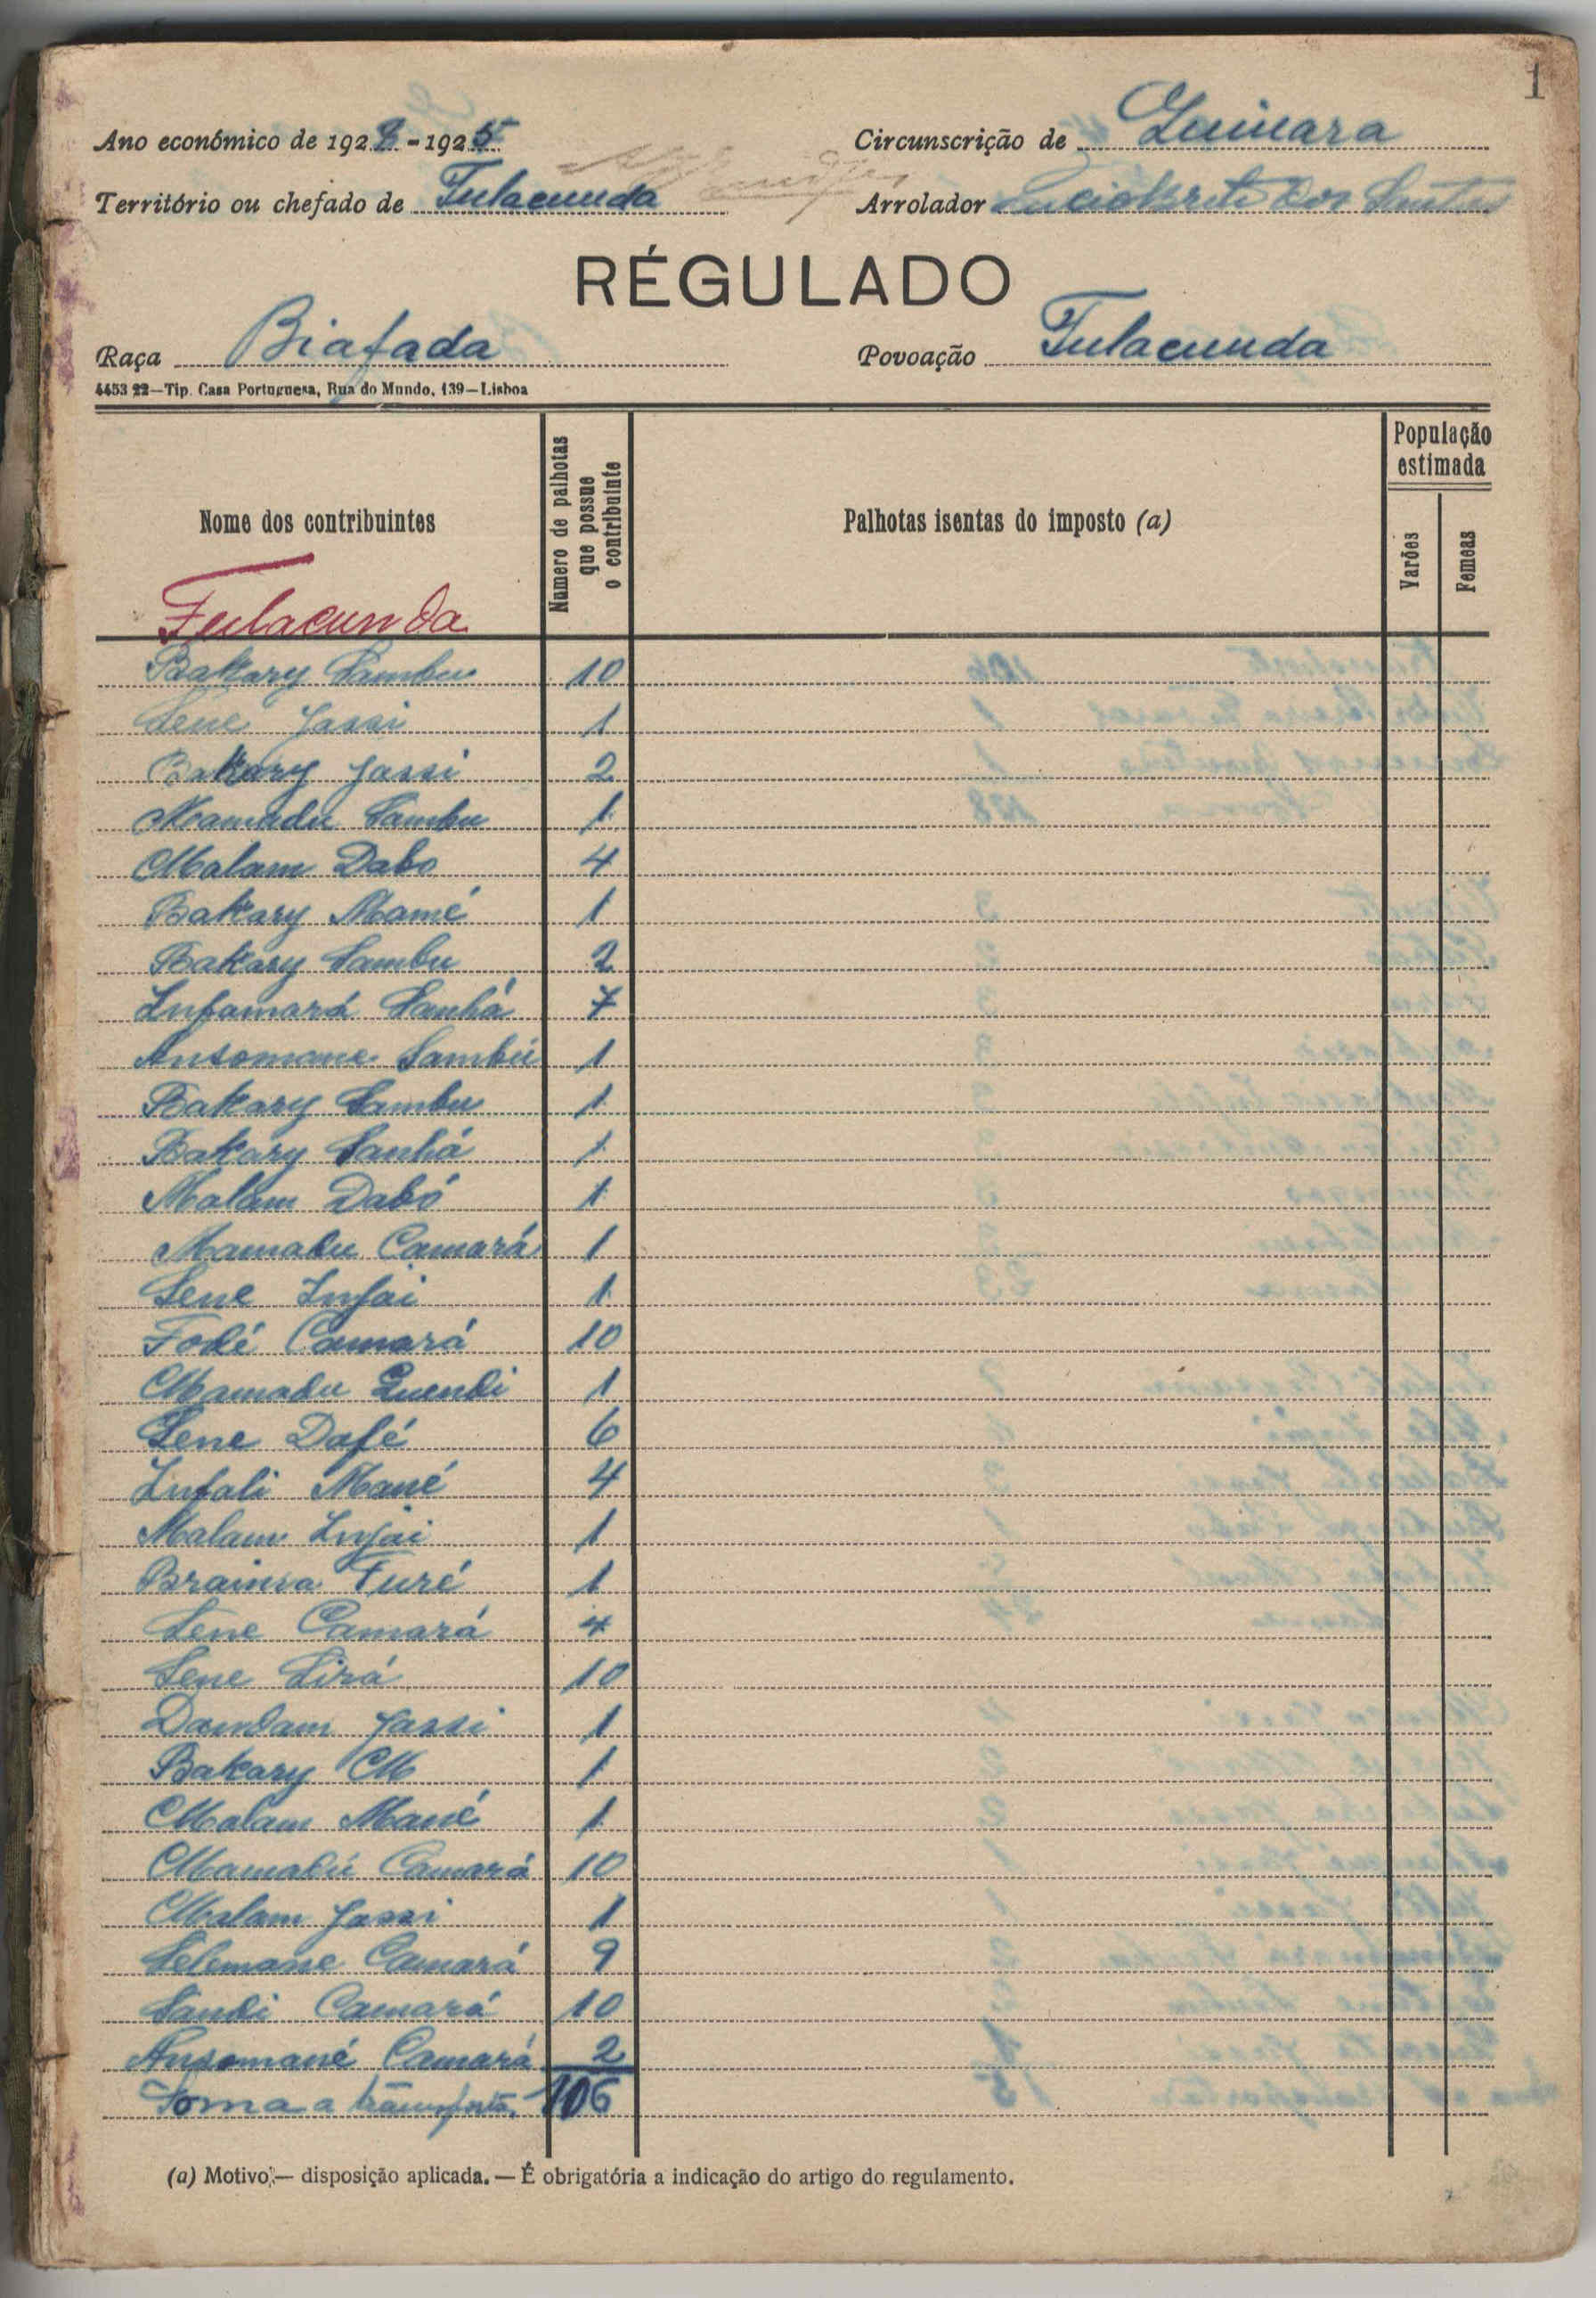 1
Ano económico de 1924-1925 Circunscrição de Quinara
Território ou chefado de Fulacunda Arrolador dos Santos
RÉGULADO
Raça Biafada Povoação Fulacunda
4453 22—Tip. Casa Portuguesa, Rua do Mundo, 139—Lisboa
Nome dos contribuintes Numero de palhotas que possue o contribuinte Palhotas isentas do imposto (a) População estimada Varões Femeas
Fulacunda
Bakary Sambu 10
Sene Jassi 1
Bakary Jassi 2
Mamadu Sambu 1
Malam Dabo 4
Bakary Mamé 1
Bakary Sambu 2
Infamará Sanhá 7
Ansomane Sambú 1
Bakary Sambu 1
Bakary Sanhá 1
Malam Dabó 1
Mamadu Camará 1
Sene Injai 1
Fodé Camará 10
Mamadu Quendi 1
Sene Dafé 6
Infali Mané 4
Malam Injai 1
Braima Turé 1
Sene Camará 4
Sene Sirá 10
Dandam Jassi 1
Bakary M 1
Malam Mané 1
Mamadú Camará 10
Malam Jassi 1
Selemane Camará 9
Sandi Camará 10
Ansomané Camará 2
Soma a transporte 106
(a) Motivo;— disposição aplicada.— É obrigatória a indicação do artigo do regulamento.